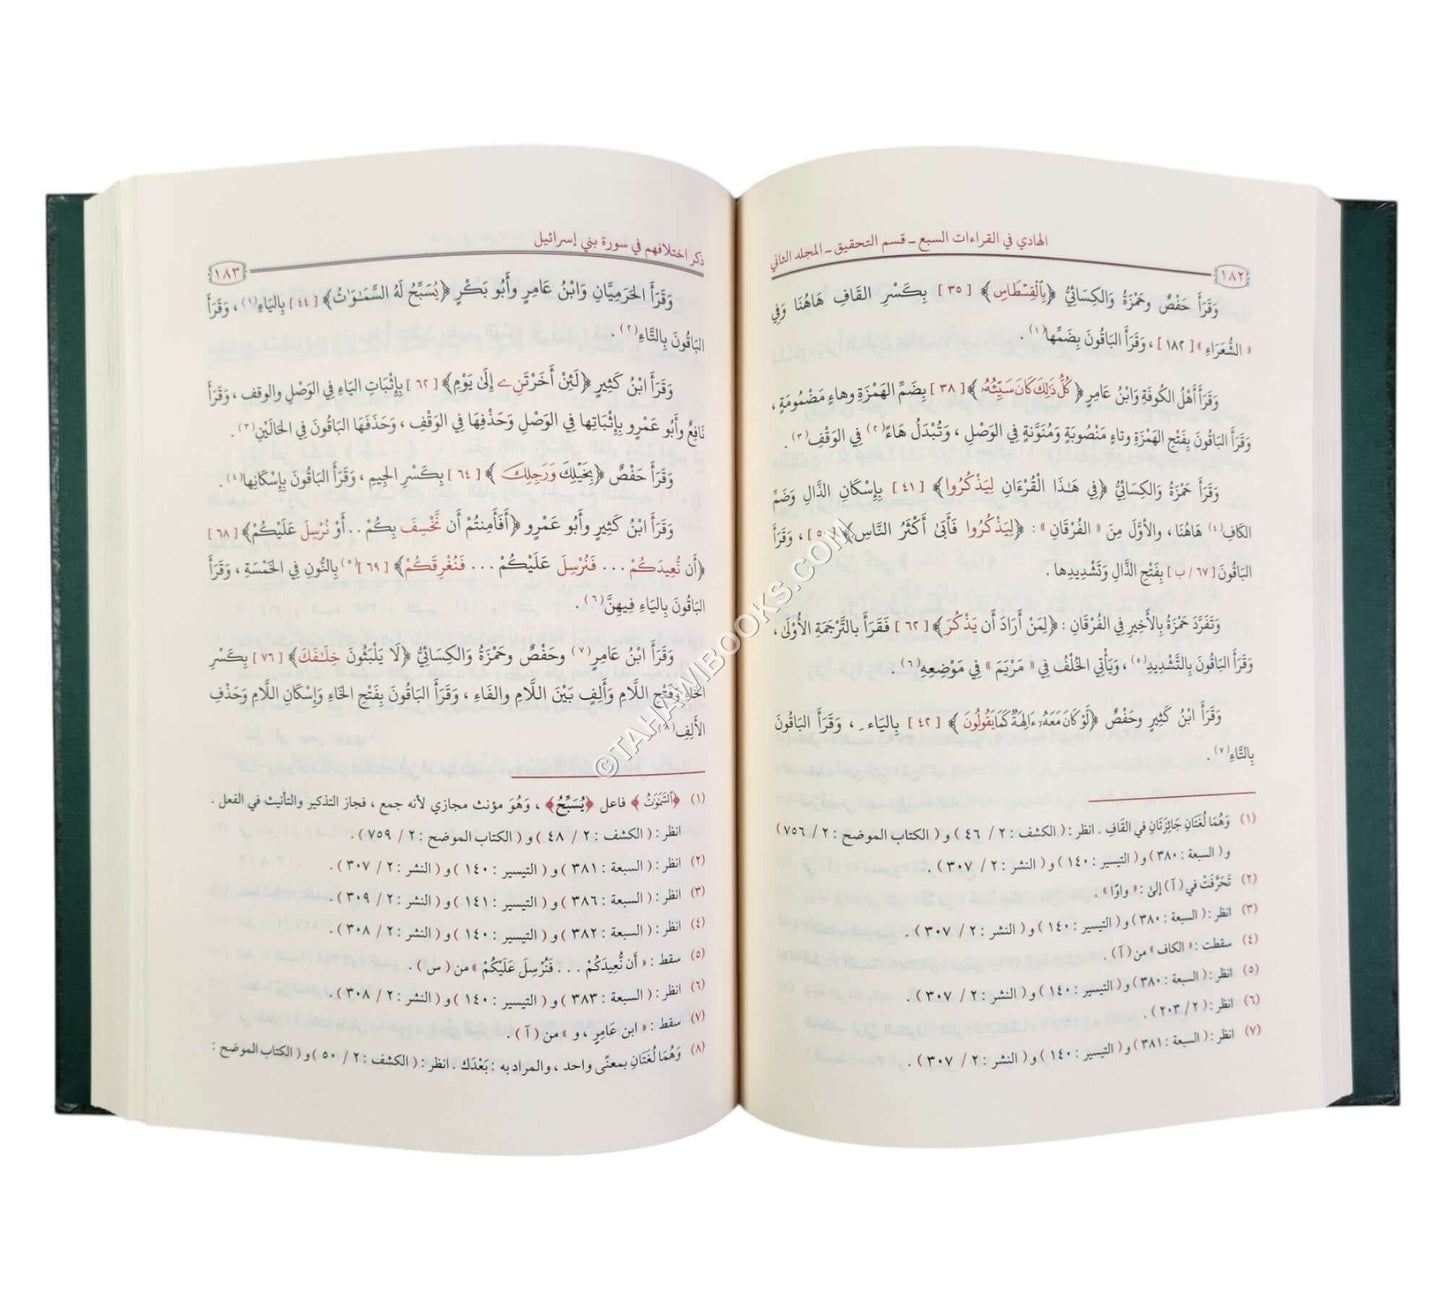 الهادي في القراءات السبع ــ قسم التحقيق ــ المجلد الثاني
١٨٢
وَقَرَأَ حَفْصٌ وحَمْزَةُ وَالكِسَائِيُّ ﴿بِٱلْقِسْطَاسِ﴾ [٣٥] بِكَسْرِ القَافِ هَاهُنَا وَفِي
« الشُّعَرَاءِ » [١٨٢] ، وَقَرَأَ البَاقُونَ بِضَمِّها (١) .
وَقَرَأَ أَهْلُ الكُوفَةِ وَابْنُ عَامِرٍ ﴿كُلُّ ذَٰلِكَ كَانَ سَيِّئُهُۥ﴾ [٣٨] بِضَمِّ الهَمْزَةِ وهاءٍ مَضْمُومَةٍ ،
وَقَرَأَ البَاقُونَ بِفَتْحِ الهَمْزَةِ وتاءٍ مَنْصُوبَةٍ وَمُنَوَّنةٍ فِي الوَصْلِ ، وَتُبْدَلُ هَاءً (٢) فِي الوَقْفِ (٣) .
وَقَرَأَ حَمْزَةُ وَالكِسَائِيُّ ﴿فِي هَـٰذَا الْقُرْءَانِ لِيَذْكُرُوا﴾ [٤١] بِإِسْكَانِ الذَّالِ وَضَمِّ
الكَافِ (٤) هَاهُنَا ، والأوَّلَ مِنَ « الفُرْقَانِ » : ﴿لِيَذْكُرُوا فَأَبَىٰ أَكْثَرُ النَّاسِ﴾ [٥٠] ، وَقَرَأَ
البَاقُونَ [٦٧/ب] بِفَتْحِ الذَّالِ وَتَشْدِيدِها .
وَتَفَرَّدَ حَمْزَةُ بِالأَخِيرِ فِي الفُرْقَانِ : ﴿لِمَنْ أَرَادَ أَن يَذْكُرَ﴾ [٦٢] فَقَرَأَ بالتَّرْجَمَةِ الأُوْلَى ،
وَقَرَأَ البَاقُونَ بِالتَّشْدِيدِ (٥) ، وَيَأْتِي الخُلْفُ فِي « مَرْيَمَ » فِي مَوْضِعِهِ (٦) .
وَقَرَأَ ابْنُ كَثِيرٍ وحَفْصٌ ﴿لَوْ كَانَ مَعَهُۥٓ ءَالِهَةٌ كَمَا يَقُولُونَ﴾ [٤٢] بِالياءِ ، وَقَرَأَ البَاقُونَ
بِالتَّاءِ (٧) .
(١) وَهُمَا لُغَتَانِ جَائِزَتَانِ في القَافِ . انظر : ( الكشف : ٢ / ٤٦ ) و ( الكتاب الموضح : ٢ / ٧٥٦ )
و ( السبعة : ٣٨٠ ) و ( التيسير : ١٤٠ ) و ( النشر : ٢ / ٣٠٧ ) .
(٢) تَحَرَّفَتْ في ( آ ) إلىٰ : « واوًا » .
(٣) انظر : ( السبعة : ٣٨٠ ) و ( التيسير : ١٤٠ ) و ( النشر : ٢ / ٣٠٧ ) .
(٤) سقطت : « الكاف » من ( آ ) .
(٥) انظر : ( السبعة : ٣٨٠ ) و ( التيسير : ١٤٠ ) و ( النشر : ٢ / ٣٠٧ ) .
(٦) انظر : ( ٢ / ٢٠٣ ) .
(٧) انظر : ( السبعة : ٣٨١ ) و ( التيسير : ١٤٠ ) و ( النشر : ٢ / ٣٠٧ ) .
ذكر اختلافهم في سورة بني إسرائيل
١٨٣
وَقَرَأَ الحَرَمِيَّانِ وَابْنُ عَامِرٍ وأَبُو بَكْرٍ ﴿يُسَبِّحُ لَهُ السَّمَـٰوَاتُ﴾ [٤٤] بِاليَاءِ (١) ، وَقَرَأَ
البَاقُونَ بِالتَّاءِ (٢) .
وَقَرَأَ ابْنُ كَثِيرٍ ﴿لَئِنْ أَخَّرْتَنِ ے إِلَىٰ يَوْمِ﴾ [٦٢] بِإِثْبَاتِ اليَاءِ فِي الوَصْلِ والوقف ، وَقَرَأَ
نَافِعٌ وأَبُو عَمْرٍو بِإِثْبَاتِها فِي الوَصْلِ وَحَذْفِهَا فِي الوَقْفِ ، وَحَذَفَهَا البَاقُونَ فِي الحَالَيْنِ (٣) .
وَقَرَأَ حَفْصٌ ﴿بِخَيْلِكَ وَرَجِلِكَ﴾ [٦٤] بِكَسْرِ الجِيمِ ، وَقَرَأَ البَاقُونَ بِإِسْكَانِها (٤) .
وَقَرَأَ ابْنُ كَثِيرٍ وأَبُو عَمْرٍو ﴿أَفَأَمِنتُمْ أَن نَّخْسِفَ بِكُمْ . . . أَوْ نُرْسِلَ عَلَيْكُمْ﴾ [٦٨]
﴿أَن نُّعِيدَكُمْ . . . فَنُرْسِلَ عَلَيْكُمْ . . . فَنُغْرِقَكُمْ﴾ [٦٩] (٥) بِالنُّونِ فِي الخَمْسَةِ ، وَقَرَأَ
البَاقُونَ بِاليَاءِ فِيهِنَّ (٦) .
وَقَرَأَ ابْنُ عَامِرٍ (٧) وحَفْصٌ وحَمْزَةُ وَالكِسَائِيُّ ﴿لَا يَلْبَثُونَ خِلَـٰفَكَ﴾ [٧٦] بِكَسْرِ
الخَاءِ وَفَتْحِ اللَّامِ وأَلِفٍ بَيْنَ اللَّامِ والفَاءِ ، وَقَرَأَ البَاقُونَ بِفَتْحِ الخَاءِ وَإِسْكَانِ اللَّامِ وَحَذْفِ
الأَلِفِ (٨) .
(١) ﴿ٱلسَّمَٰوَٰتُ﴾ فاعل ﴿يُسَبِّحُ﴾ ، وَهُوَ مؤنث مجازي لأنه جمع ، فجاز التذكير والتأنيث في الفعل .
انظر : ( الكشف : ٢ / ٤٨ ) و ( الكتاب الموضح : ٢ / ٧٥٩ ) .
(٢) انظر : ( السبعة : ٣٨١ ) و ( التيسير : ١٤٠ ) و ( النشر : ٢ / ٣٠٧ ) .
(٣) انظر : ( السبعة : ٣٨٦ ) و ( التيسير : ١٤١ ) و ( النشر : ٢ / ٣٠٩ ) .
(٤) انظر : ( السبعة : ٣٨٢ ) و ( التيسير : ١٤٠ ) و ( النشر : ٢ / ٣٠٨ ) .
(٥) سقط : « أَن نُّعِيدَكُمْ . . . فَنُرْسِلَ عَلَيْكُمْ » من ( س ) .
(٦) انظر : ( السبعة : ٣٨٣ ) و ( التيسير : ١٤٠ ) و ( النشر : ٢ / ٣٠٨ ) .
(٧) سقط : « ابن عَامِرٍ ، و » من ( آ ) .
(٨) وَهُمَا لُغَتَانِ بمعنًى واحد ، والمراد به : بَعْدَك . انظر : ( الكشف : ٢ / ٥٠ ) و ( الكتاب الموضح :
©TAHAWIBOOKS.COM